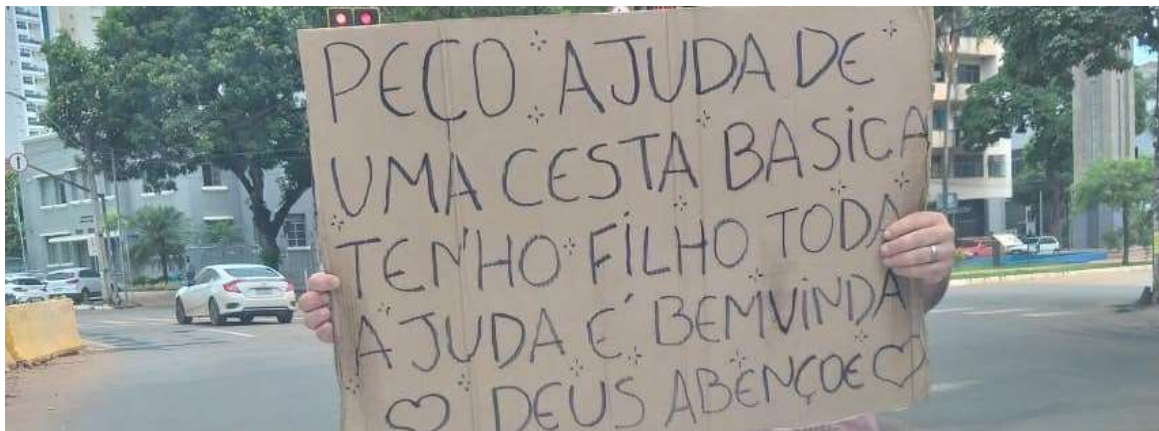 PECO AJUDA DE
UMA CESTA BASiCA
TENHO FiLHO TODA
AJUDA É BEMViNDA
♡ DEUS ABENÇOE ♡